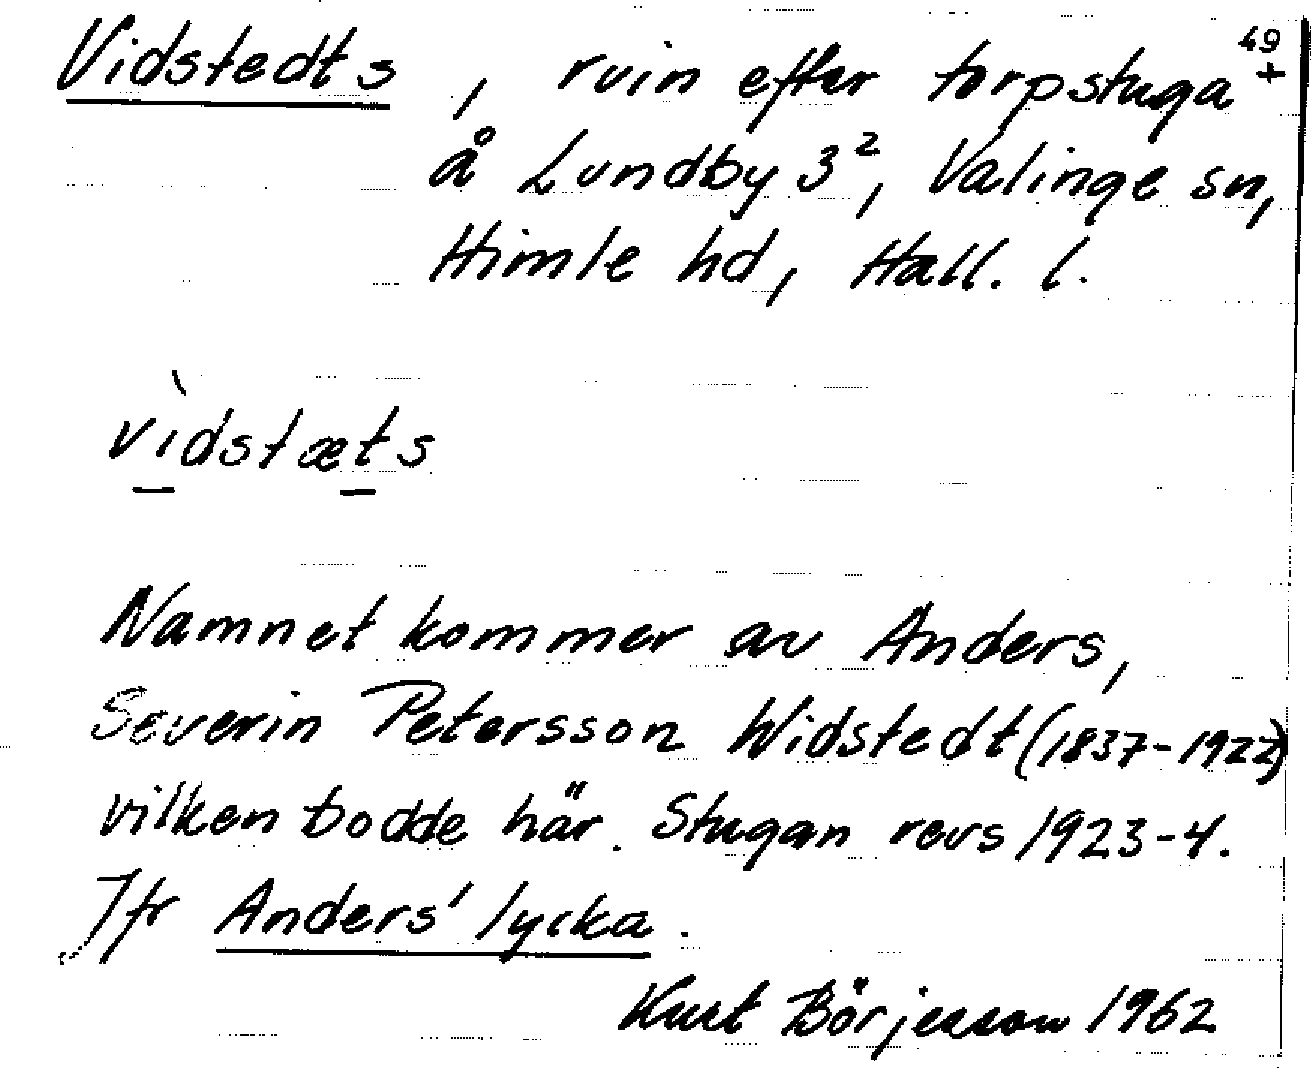 49
+
Vidstedts, ruin efter torpstuga
å Lundby 3², Valinge sn,
Himle hd, Hall. l.
vìdstæts
Namnet kommer av Anders,
Severin Petersson Widstedt (1837-1922)
vilken bodde här. Stugan revs 1923-4.
Jfr Anders' lycka.
Kurt Börjesson 1962